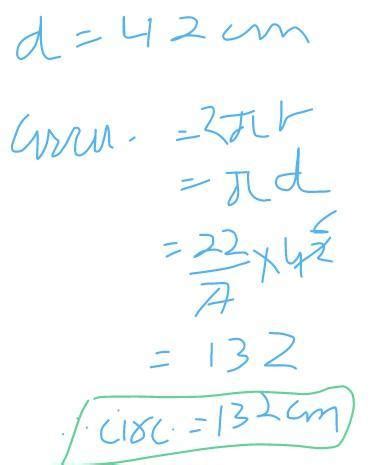 d = 42 cm
Circu. = 2πr
= πd
= 22/7 × 42 6
= 132
∴ circ. = 132 cm